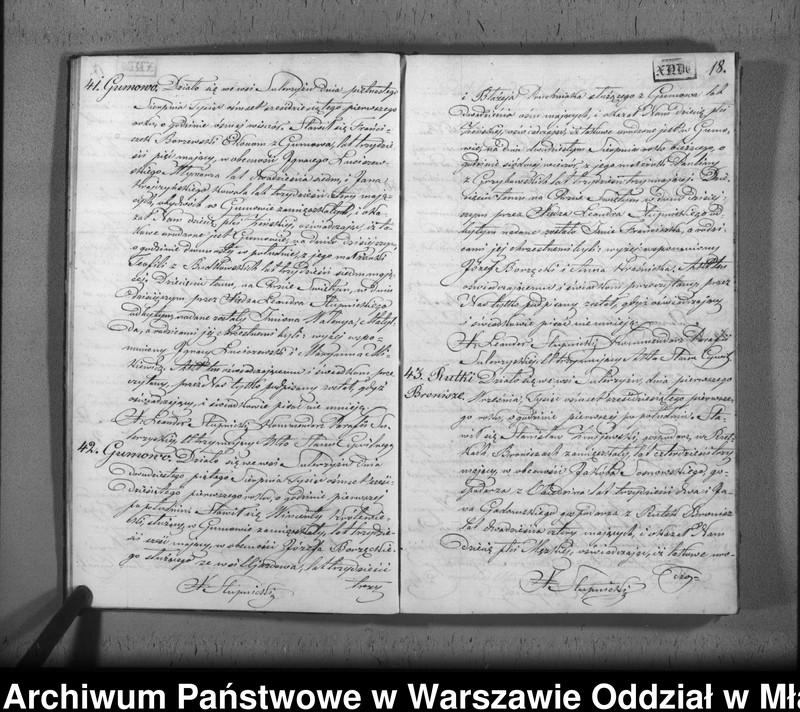 41. Gumowo. Działo się we wsi Sulerzyżu dnia piętnastego
Sierpnia tysiąc ośmset sześćdziesiątego pierwszego
roku, o godzinie ósmej wieczór. Stawił się Franci-
szek Borzewski Ekonom z Gumowa, lat trzydzieś-
ci pięć mający, w obecności Ignacego
Młynarza lat dwadzieścia siedm, i Jana
Kowala lat trzydzieści trzy mają-
cych, obydwóch w Gumowie zamieszkałych, i oka-
zał Nam dziecię płci żeńskiej, oświadczając, iż ta-
kowe urodzone jest w Gumowie, na dniu dzisiejszym,
o godzinie dwunastej w południe, z jego małżonki
Teofili z lat trzydzieści siedm mają-
cej. Dziecięciu temu, na Chrzcie Świętym, w dniu
dzisiejszym przez Xiędza Leandra Słupnickiego
odbytym, nadane zostały Imiona Walerya, Matyl-
da, a rodzicami jej Chrzestnemi byli: wyżej wspo-
mniony Ignacy i Maryanna
Akt ten oświadczającemu i świadkom prze-
czytany, przez Nas tylko podpisany został, gdyż
oświadczający, i świadkowie pisać nie umieją.
X. Leander Słupnicki Kommendarz Parafii Su-
lerzyskiej, Utrzymujący Akta Stanu Cywilnego
42. Gumowo. Działo się we wsi Sulerzyżu dnia
dwudziestego piątego Sierpnia tysiąc ośmset sześć-
dziesiątego pierwszego roku, o godzinie pierwszej
po południu. Stawił się Wincenty
służący, w Gumowie zamieszkały, lat trzydzie-
ści mający, w obecności Józefa Borzęckie-
go służącego ze wsi lat trzydzieści
X Słupnicki trzy
18.
i Błażeja służącego z Gumowa lat
dwadzieścia ośm mających, i okazał Nam dziecię płci
żeńskiej, oświadczając, iż takowe urodzone jest w Gumo-
wie, na dniu dwudziestym Sierpnia roku bieżącego, o
godzinie siódmej wieczór, z jego małżonki
z lat trzydzieści trzy mającej. Dzie-
cięciu temu na Chrzcie Świętym w dniu dzisiej-
szym przez Xiędza Leandra Słupnickiego od-
bytym nadane zostało Imię Franciszka, a rodzi-
cami jej chrzestnemi byli: wyżej wspomniony
Józef Borzęcki i Anna Akt ten
oświadczającemu i świadkom przeczytany przez
Nas tylko podpisany został, gdyż oświadczający
i świadkowie pisać nie umieją.
X. Leander Słupnicki Kommendarz Parafii
Sulerzyskiej, Utrzymujący Akta Stanu Cywil.
43. Rutki Bronisze. Działo się we wsi Sulerzyżu, dnia pierwszego
Września, tysiąc ośmset sześćdziesiątego pierwsze-
go roku, o godzinie pierwszej po południu. Sta-
wił się Stanisław gospodarz, w Rut-
kach Broniszach zamieszkały, lat czterdzieści trzy
mający, w obecności Jakóba go-
spodarza z lat trzydzieści dwa i Pa-
wła gospodarza z Rutek Bronisz
lat dwadzieścia cztery mających, i okazał Nam
dziecię płci Męzkiej, oświadczając, iż takowe uro-
X Słupnicki dzo-
Archiwum Państwowe w Warszawie Oddział w Mła